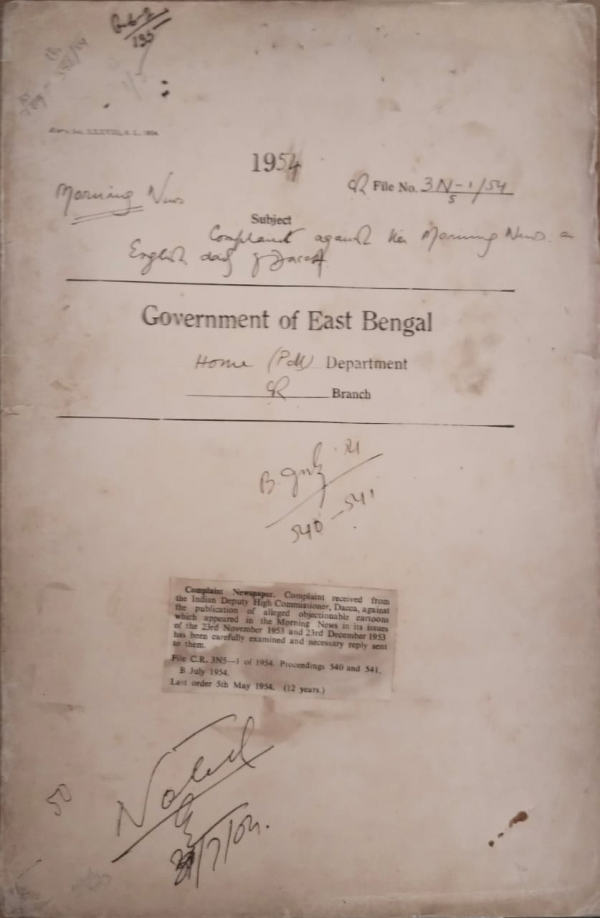 B-6-2
135
1954
CR File No. 3N-1/54
5
Morning News
Subject
Complaint against the Morning News an
English daily of Dacca.
Government of East Bengal
Home (Poll) Department
CR Branch
B July 54
540-541
Complaint Newspaper. Complaint received from
the Indian Deputy High Commissioner, Dacca, against
the publication of alleged objectionable cartoons
which appeared in the Morning News in its issues
of the 23rd November 1953 and 23rd December 1953
has been carefully examined and necessary reply sent
to them.
File C.R. 3N5—1 of 1954. Proceedings 540 and 541,
B July 1954.
Last order 5th May 1954. (12 years.)
50
Noted